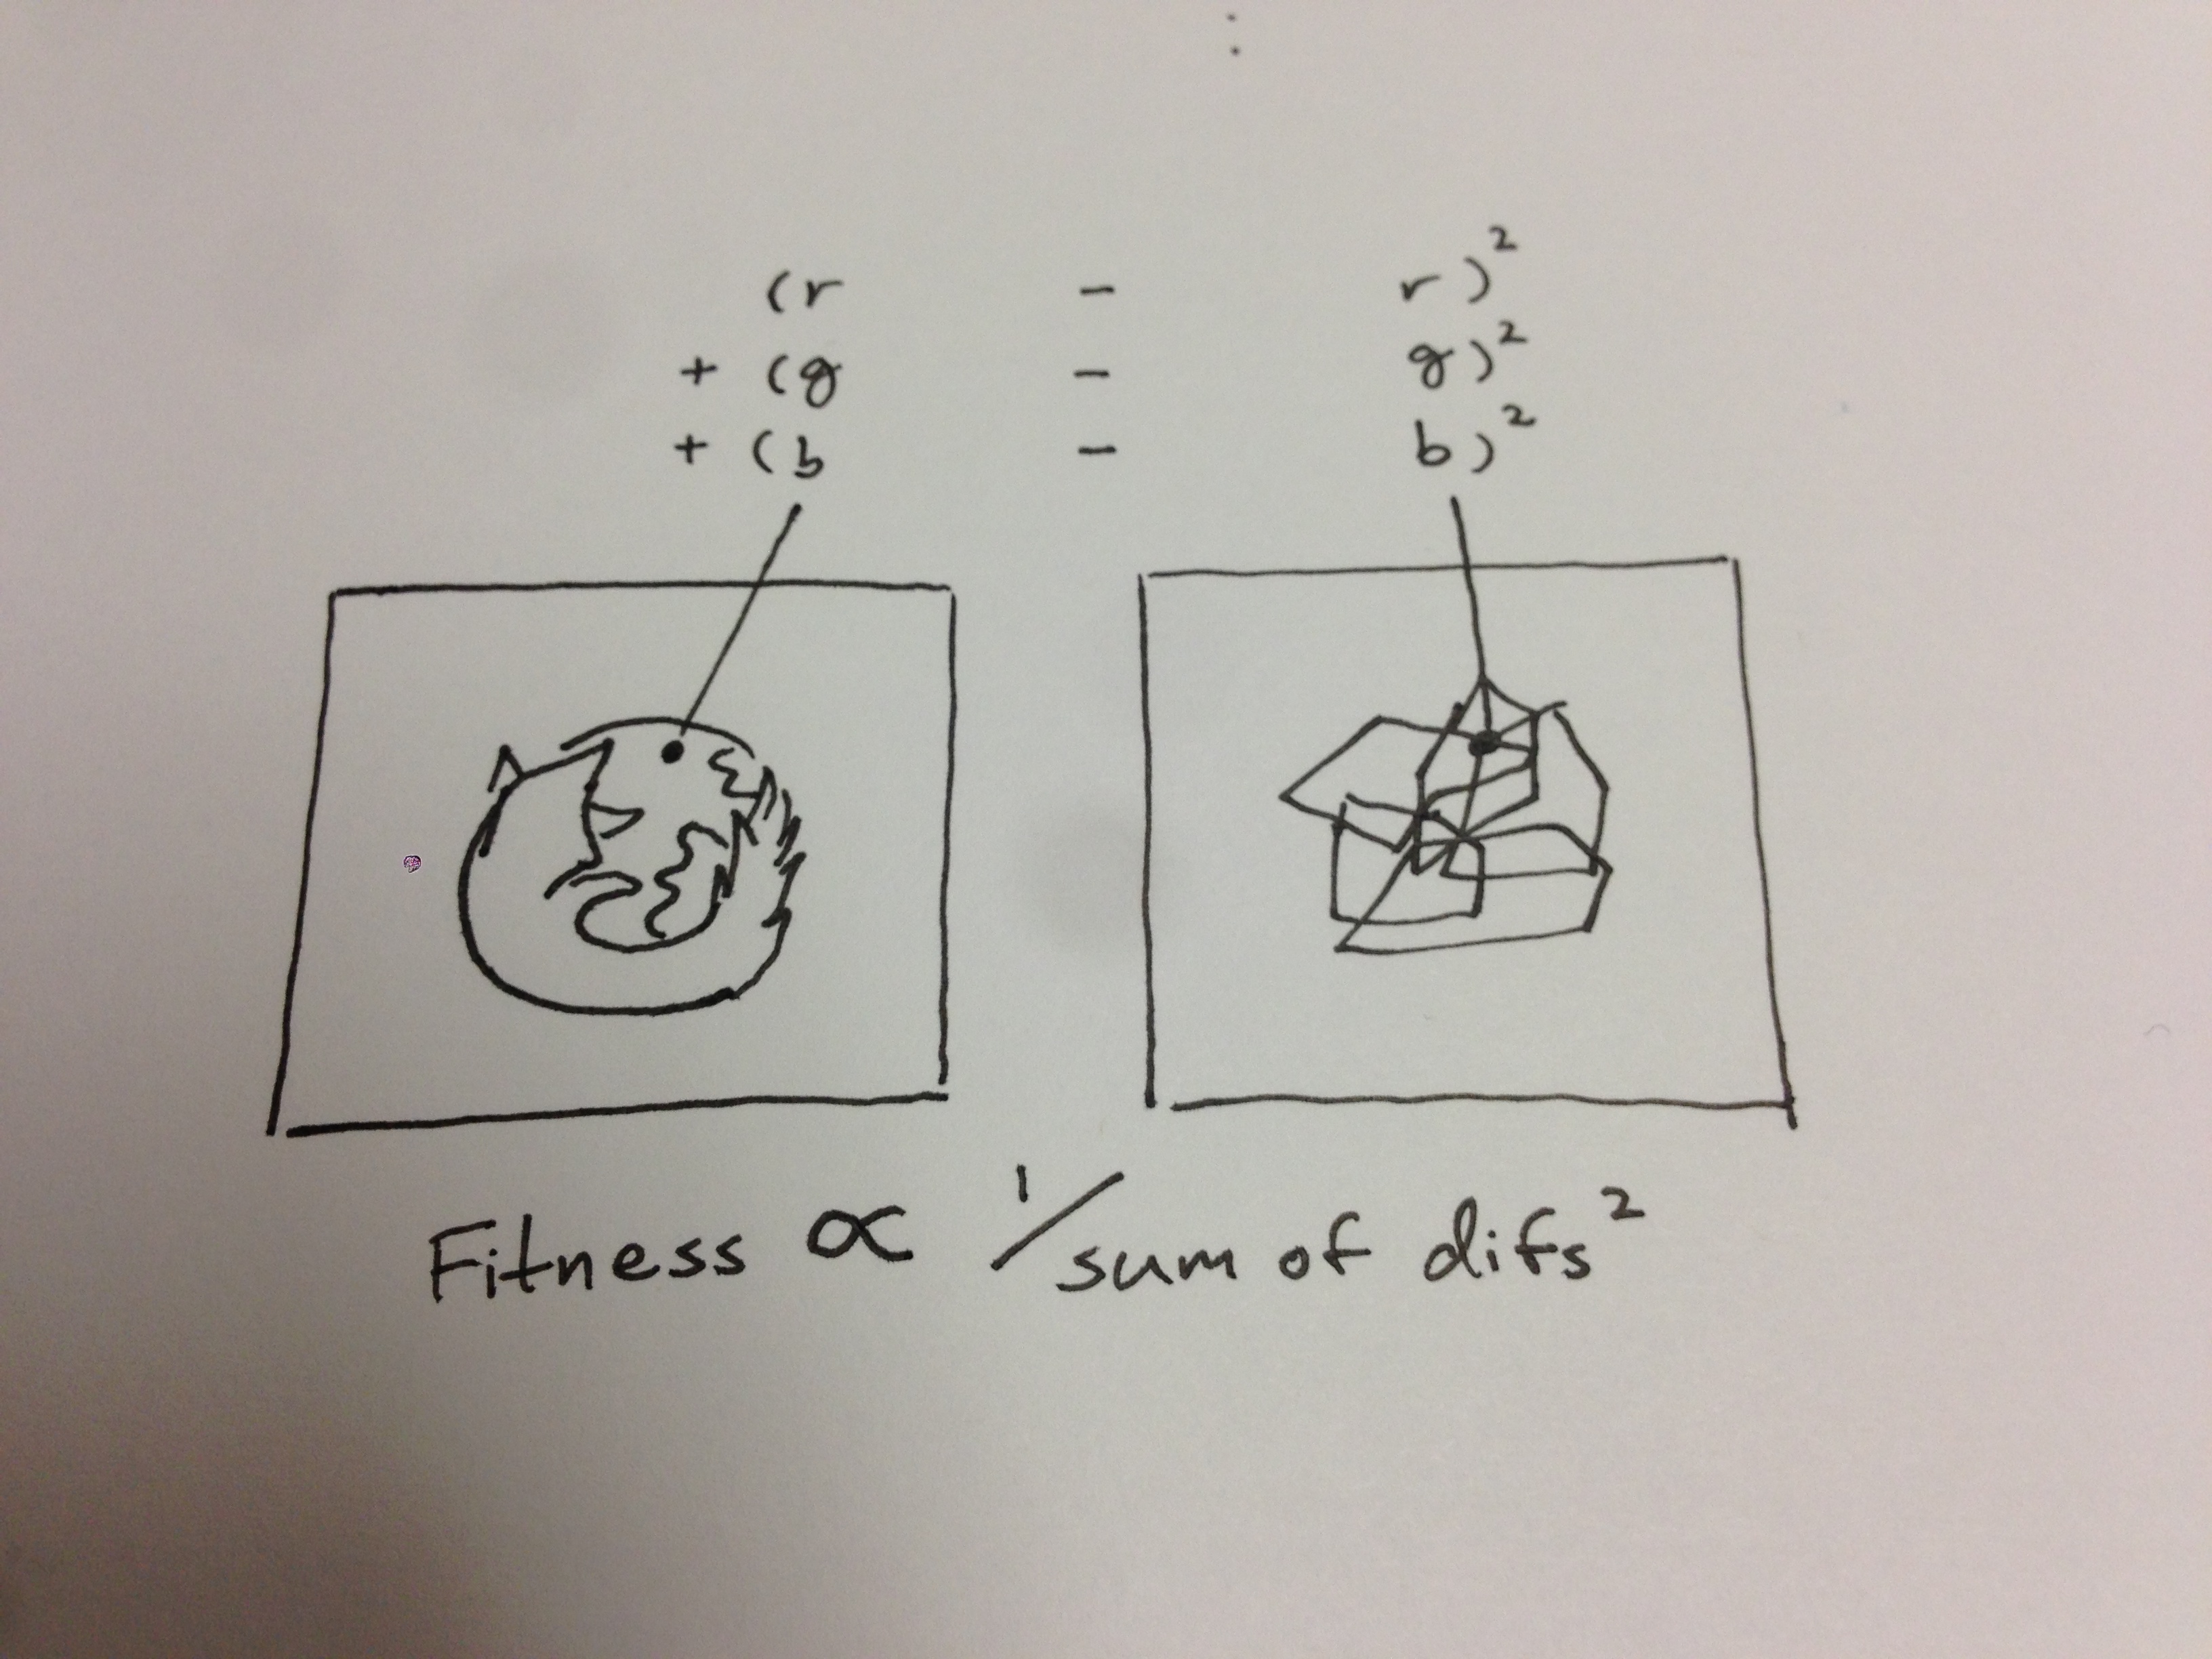 (r - r)²
+ (g - g)²
+ (b - b)²
Fitness ∝ 1/sum of difs²